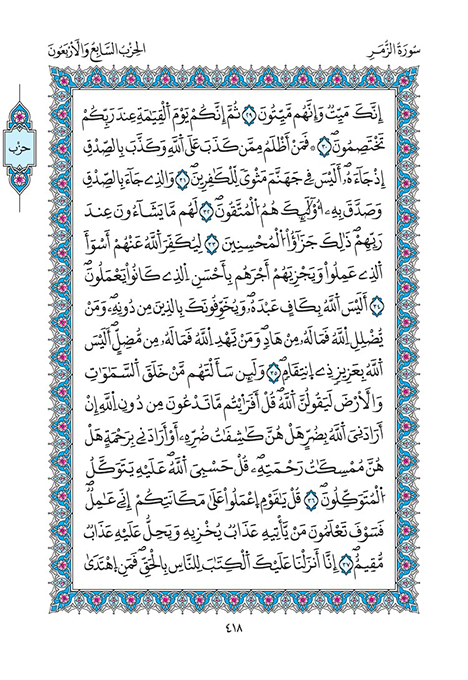 سُورَةُ الزُّمَرِ
الحِزْبُ السَّابِعُ وَالأَرْبَعُونَ
حزب
إِنَّكَ مَيِّتٌ وَإِنَّهُم مَّيِّتُونَ ٢٩ ثُمَّ إِنَّكُمْ يَوْمَ اَلْقِيَٰمَةِ عِندَ رَبِّكُمْ
تَخْتَصِمُونَ ٣٠ ۞ فَمَنْ أَظْلَمُ مِمَّن كَذَبَ عَلَى اَللَّهِ وَكَذَّبَ بِالصِّدْقِ
إِذْ جَآءَهُۥ أَلَيْسَ فِي جَهَنَّمَ مَثْوىً لِّلْكَٰفِرِينَ ٣١ وَالَّذِي جَآءَ بِالصِّدْقِ
وَصَدَّقَ بِهِۦ أُوْلَٰٓئِكَ هُمُ اُلْمُتَّقُونَ ٣٢ لَهُم مَّا يَشَآءُونَ عِندَ
رَبِّهِمْ ذَٰلِكَ جَزَآؤُاْ اُلْمُحْسِنِينَ ٣٣ لِيُكَفِّرَ اَللَّهُ عَنْهُمْ أَسْوَأَ
اَلَّذِي عَمِلُواْ وَيَجْزِيَهُمْ أَجْرَهُم بِأَحْسَنِ اِلَّذِي كَانُواْ يَعْمَلُونَ
٣٤ أَلَيْسَ اَللَّهُ بِكَافٍ عَبْدَهُۥ وَيُخَوِّفُونَكَ بِالَّذِينَ مِن دُونِهِۦ وَمَنْ
يُّضْلِلِ اِللَّهُ فَمَا لَهُۥ مِنْ هَادٍ وَمَنْ يَّهْدِ اِللَّهُ فَمَا لَهُۥ مِن مُّضِلٍّ أَلَيْسَ
اَللَّهُ بِعَزِيزٍ ذِي اِنتِقَامٍ ٣٥ وَلَئِن سَأَلْتَهُم مَّنْ خَلَقَ اَلسَّمَٰوَٰتِ
وَالْأَرْضَ لَيَقُولُنَّ اَللَّهُ قُلْ أَفَرَٰٓيْتُم مَّا تَدْعُونَ مِن دُونِ اِللَّهِ إِنْ
أَرَادَنِيَ اَللَّهُ بِضُرٍّ هَلْ هُنَّ كَٰشِفَٰتُ ضُرِّهِۦ أَوْ أَرَادَنِي بِرَحْمَةٍ هَلْ
هُنَّ مُمْسِكَٰتُ رَحْمَتِهِۦ قُلْ حَسْبِيَ اَللَّهُ عَلَيْهِ يَتَوَكَّلُ
اُلْمُتَوَكِّلُونَ ٣٦ قُلْ يَٰقَوْمِ اِعْمَلُواْ عَلَىٰ مَكَانَتِكُمْ إِنِّي عَٰمِلٌ
فَسَوْفَ تَعْلَمُونَ مَنْ يَّأْتِيهِ عَذَابٌ يُخْزِيهِ وَيَحِلُّ عَلَيْهِ عَذَابٌ
مُّقِيمٌ ٣٧ إِنَّآ أَنزَلْنَا عَلَيْكَ اَلْكِتَٰبَ لِلنَّاسِ بِالْحَقِّ فَمَنِ اِهْتَدَىٰ
٤١٨